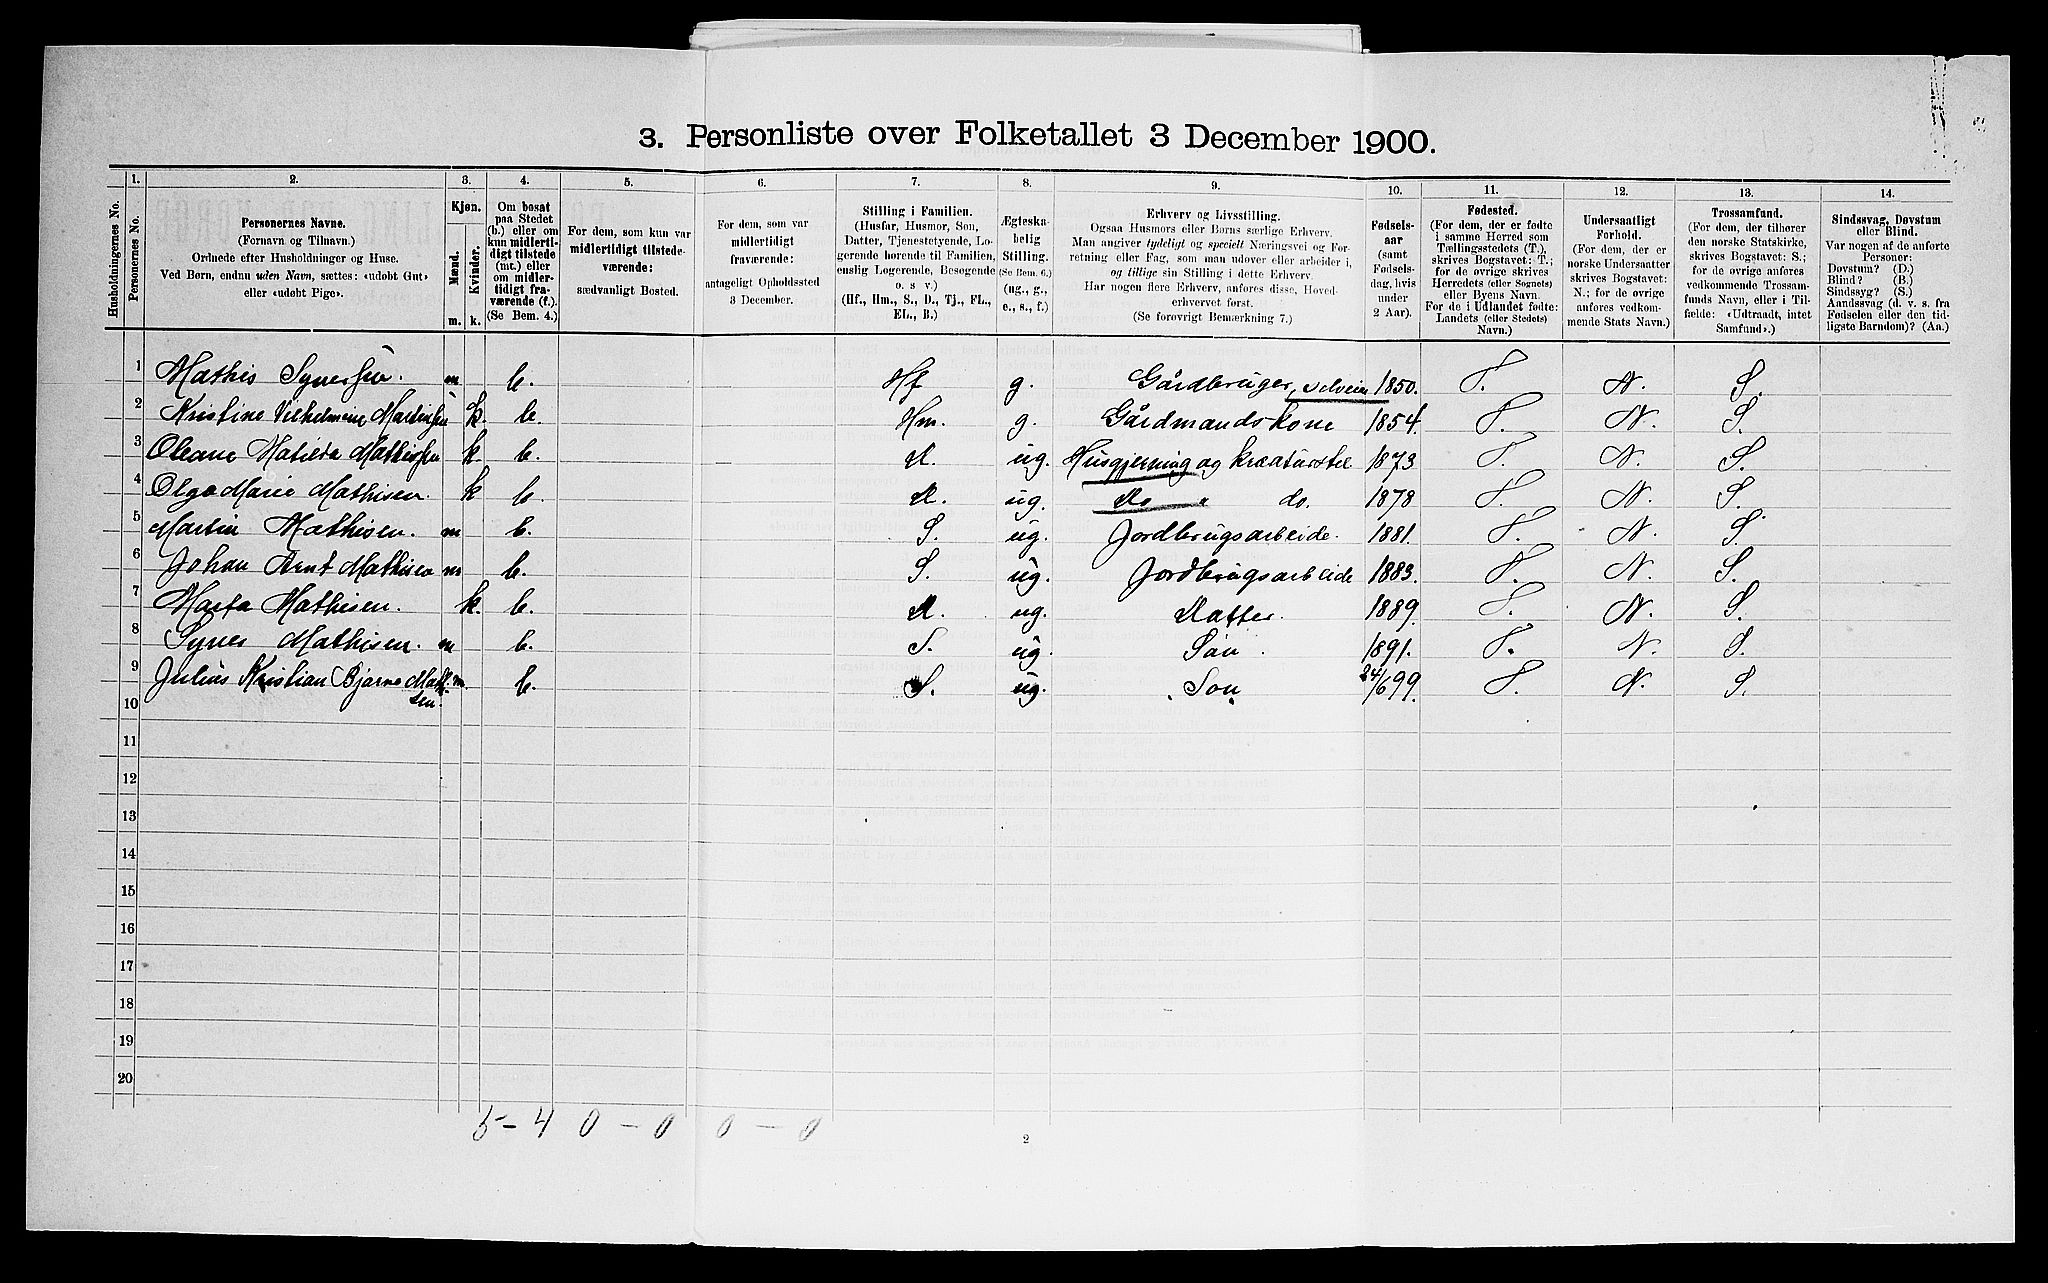 3. Personliste over Folketallet 3 December 1900.
Husholdningernes No.
1. Personernes No.
2. Personernes Navne. (Fornavn og Tilnavn.) Ordnede efter Husholdninger og Huse. Ved Børn, endnu uden Navn, sættes: «udøbt Gut» eller «udøbt Pige».
3. Kjøn. Mænd. m. Kvinder. k.
4. Om bosat paa Stedet (b.) eller om kun midlertidigt tilstede (mt.) eller om midlertidigt fraværende (f.). (Se Bem. 4.)
5. For dem, som kun var midlertidigt tilstedeværende: sædvanligt Bosted.
6. For dem, som var midlertidigt fraværende: antageligt Opholdssted 3 December.
7. Stilling i Familien. (Husfar, Husmor, Søn, Datter, Tjenestetyende, Logerende hørende til Familien, enslig Logerende, Besøgende o. s v.) (Hf., Hm., S., D., Tj., FL., EL., B.)
8. Ægteskabelig Stilling. (Se Bem. 6.) (ug., g., e., s., f.)
9. Erhverv og Livsstilling. Ogsaa Husmors eller Børns særlige Erhverv. Man angiver tydeligt og specielt Næringsvei og Forretning eller Fag, som man udøver eller arbeider i, og tillige sin Stilling i dette Erhverv. Har nogen flere Erhverv, anføres disse, Hovederhvervet først. (Se forøvrigt Bemærkning 7.)
10. Fødselsaar (samt Fødselsdag, hvis under 2 Aar).
11. Fødested. (For dem, der er fødte i samme Herred som Tællingsstedets (T.), skrives Bogstavet: T.; for de øvrige skrives Herredets (eller Sognets) eller Byens Navn. For de i Udlandet fødte: Landets (eller Stedets) Navn.)
12. Undersaatligt Forhold. (For dem, der er norske Undersaatter skrives Bogstavet: N.; for de øvrige anføres vedkommende Stats Navn.)
13. Trossamfund. (For dem, der tilhører den norske Statskirke, skrives Bogstavet: S.; for de øvrige anføres vedkommende Trossamfunds Navn, eller i Tilfælde: «Udtraadt, intet Samfund».)
14. Sindssvag, Døvstum eller Blind. Var nogen af de anførte Personer: Døvstum? (D.) Blind? (B.) Sindssyg? (S.) Aandssvag (d. v. s. fra Fødselen eller den tidligste Barndom)? (Aa.)
1 Mathis Syversen. m b. Hf g. Gårdbruger, selveier 1850. T. N. S.
2 Kristine Vilhelmine Martinsen k. b. Hm. g. Gårdmandskone 1854. T. N. S.
3 Oleane Matilda Mathisen k. b. D. ug. Husgjerning og kreaturstel 1873 T. N. S.
4 Olga Marie Mathisen. k b. D. ug. Do " do. 1878 T. N. S.
5 Martin Mathisen. m b. S. ug. Jordbrugsarbeide. 1881. T. N. S.
6 Johan Arnt Mathisen m b. S. ug. Jordbrugsarbeide 1883. T. N. S.
7 Marta Mathisen. k. b. D. ug. Datter. 1889. T. N. S.
8 Syver Mathisen. m b. S. ug. Søn. 1891. T. N. S.
9 Julius Kristian Bjarne Mathisen. m. b. S. ug. Søn 24/6 99. T. N. S.
10
11
12
13
14
15
16
17
18
19
20
5 – 4 0 – 0 0 – 0
2